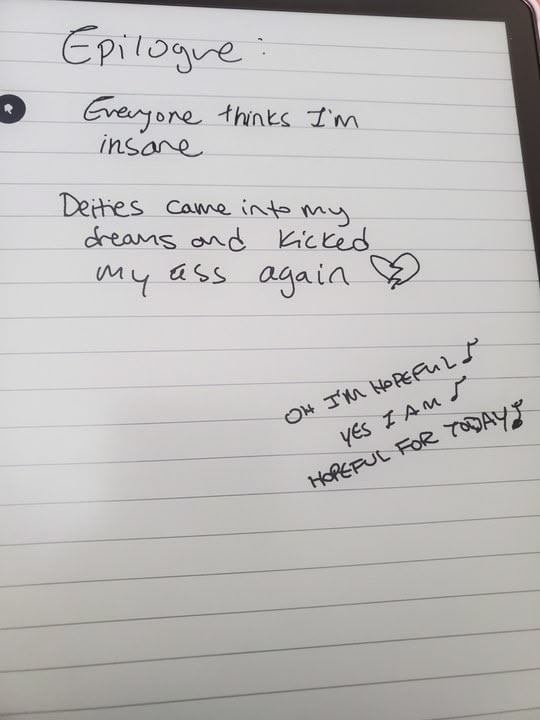 Epilogue:
R
Everyone thinks I'm
insane
Deities came into my
dreams and kicked
my ass again
OH I'M HOPEFUL
YES I AM
HOPEFUL FOR TODAY